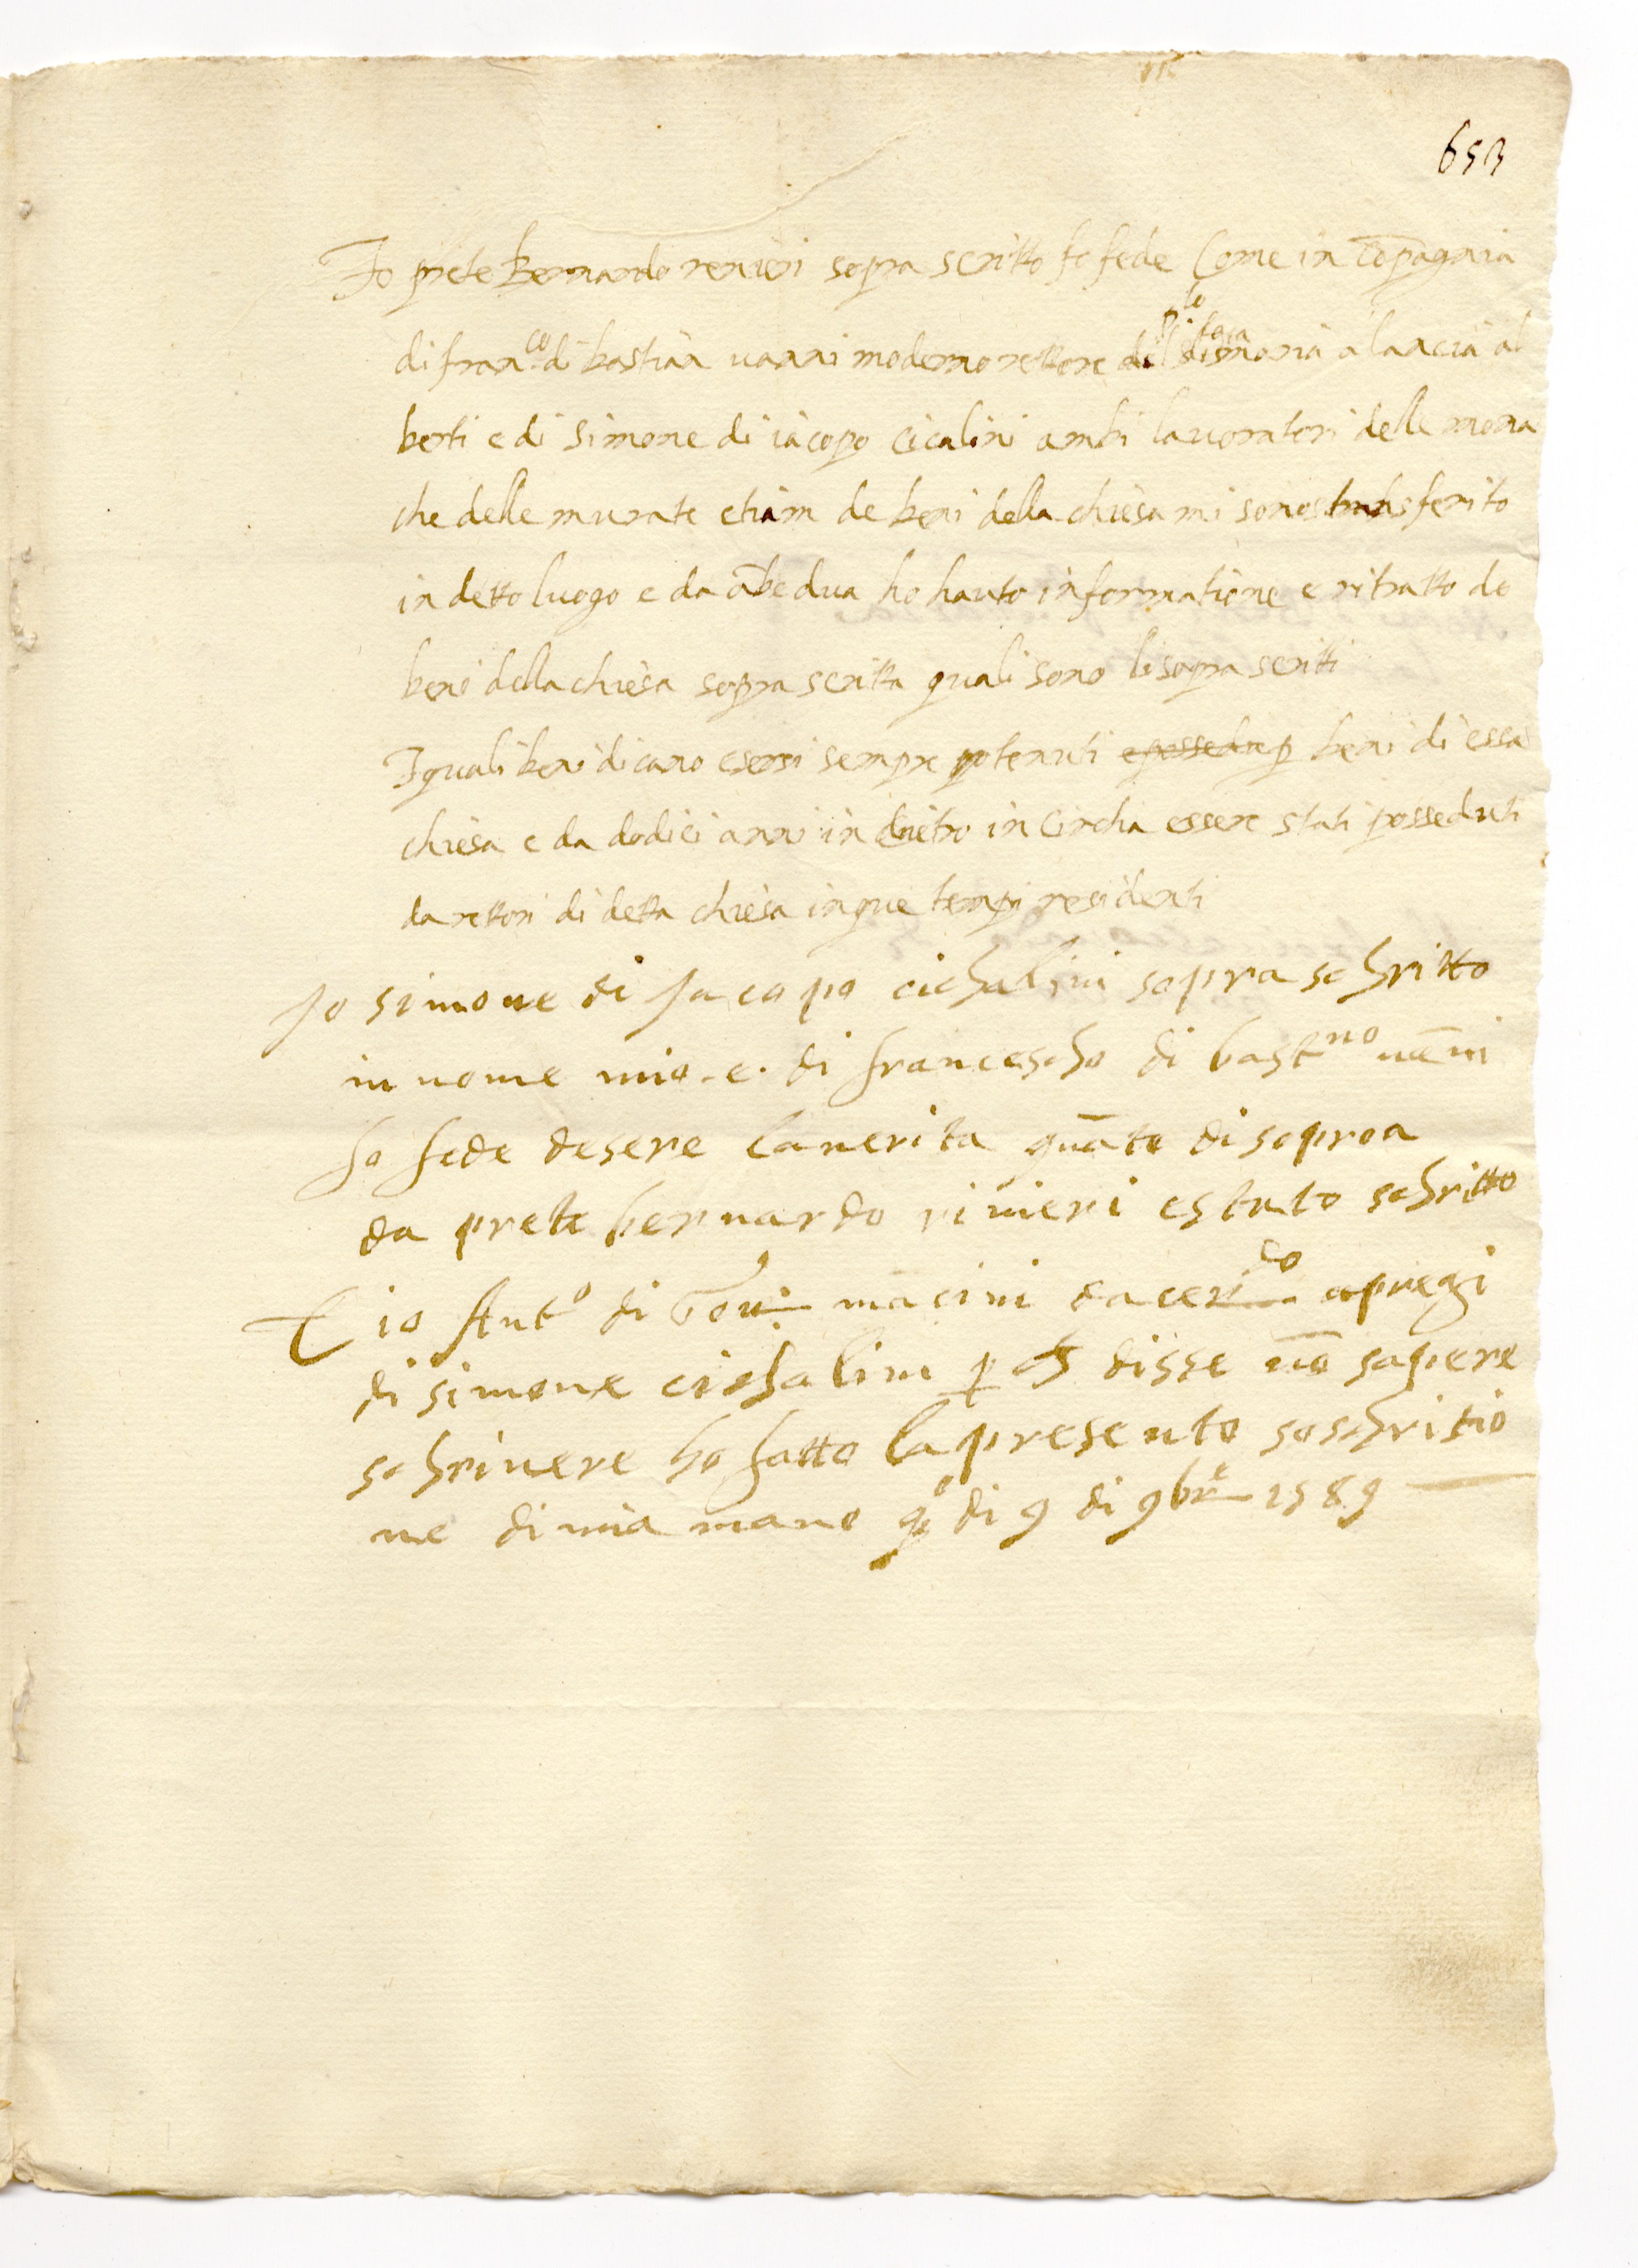 653
Io prete Bernardo renieri sopra scritto fo fede Come in co̅pagnia
di fran.co di bastian vanni moderno rettore del pilo di s.ta maria a lancia al
berti e di simone di iacopo cicalini ambi lavoratori delle mona
che delle murate etiam de beni della chiesa mi sono transferito
in detto luogo e da a̅bedua ho hauto informatione e ritratto de
beni della chiesa sopra scritta quali sono li sopra scritti
I quali beni dicano esersi sempre tenuti beni di essa
chiesa e da dodici anni in drietro in Circha essere stati posseduti
da rettori di detta chiesa in que tempi residenti
Jo simone di Jacopo cichalini sopra schritto
in nome mio. e. di franceschо di bast.no va̅ni
fo fede desere la verita qua̅to di sopra
da prete bernardo rinieri e stato schritto
E io Ant.o di Giov. ma̅cini da cer.do a pregi
di simone cichalini p̱ ch disse no̅ sapere
schrivere ho fatto la presente soschritio
ne di mia mano q.o di 9 di 9br̅e 1589